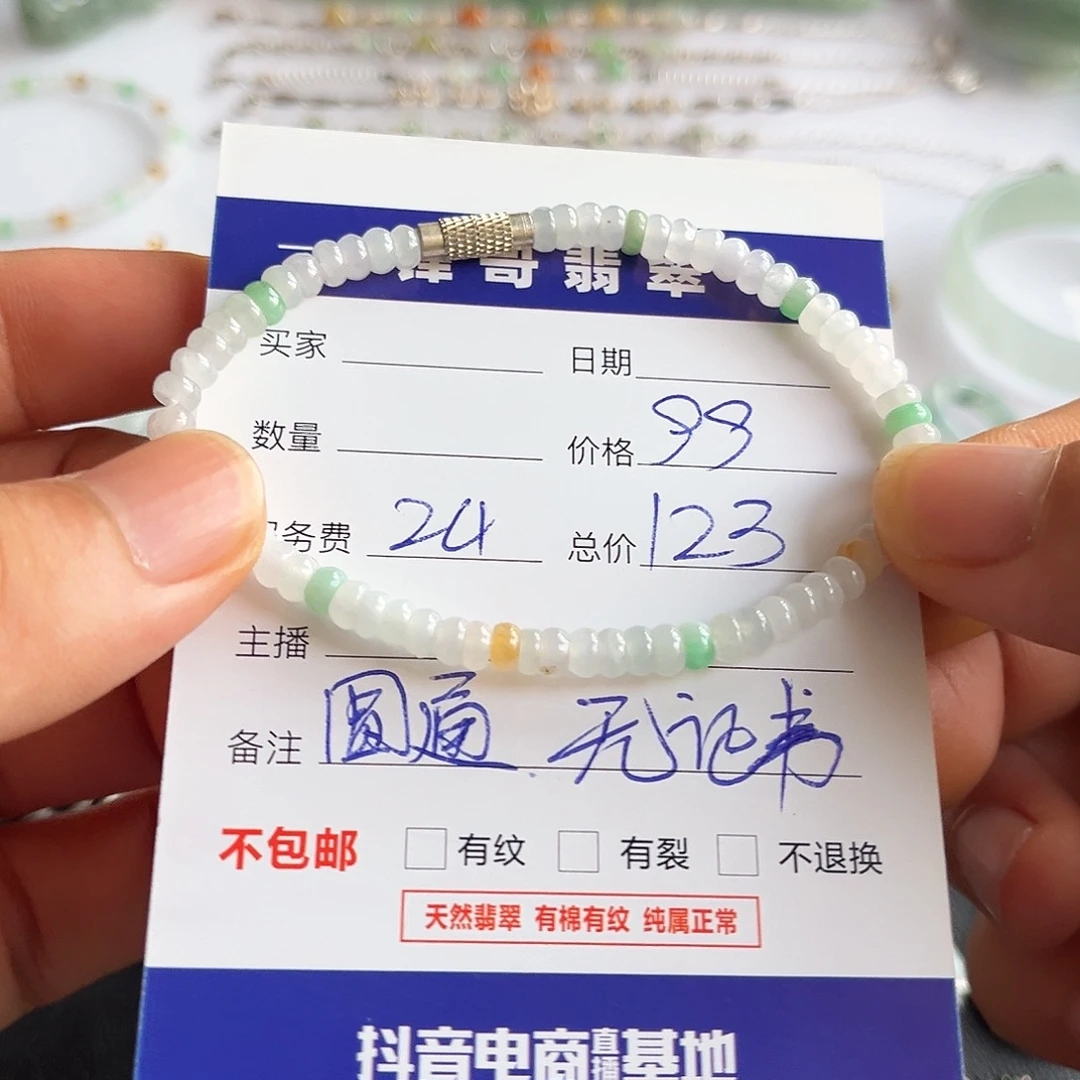 锋哥翡翠
买家 日期
数量 价格 99
务费 24 总价 123
主播
备注 圆通 无证书
不包邮 有纹 有裂 不退换
天然翡翠 有棉有纹 纯属正常
抖音电商直播基地